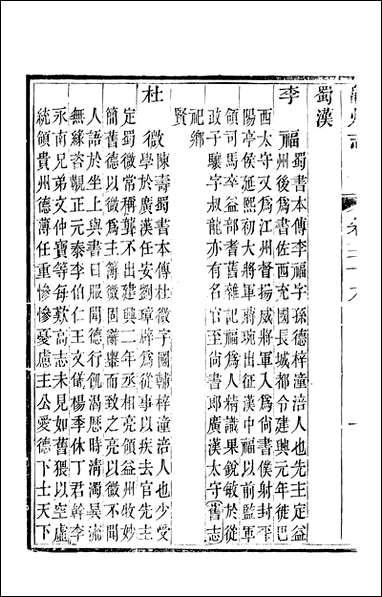 蜀漢
李福 蜀書本傳李福字孫德梓潼涪人也先主定益
州後為書佐西充國長城都令建興元年徙巴
西太守又為江州督揚威將軍入為尚書僕射封平
陽亭侯延熙初大將軍蔣琬出征漢中福以前監軍
領司馬卒益部耆舊雜記福為人精識果銳敏於從
政子驤字叔龍亦有名官至尚書郎廣漢太守舊志
祀鄉
賢
杜微 陳壽蜀書本傳杜微字國輔梓潼涪人也少受
學於廣漢任安劉璋辟為從事以疾去官先主
定蜀微常稱聾不出建興二年丞相亮領益州收妙
簡舊德以微為主簿微固辭轝而致之亮以微不聞
人語於坐上與書曰服聞德行飢渴歷時清濁異流
無緣咨觀正元泰李伯仁王文儀楊季休丁君幹李
永南兄弟文仲寶等每歎高志未見如舊猥以空虛
統領貴州德薄任重慘慘憂慮主公愛德下士天下